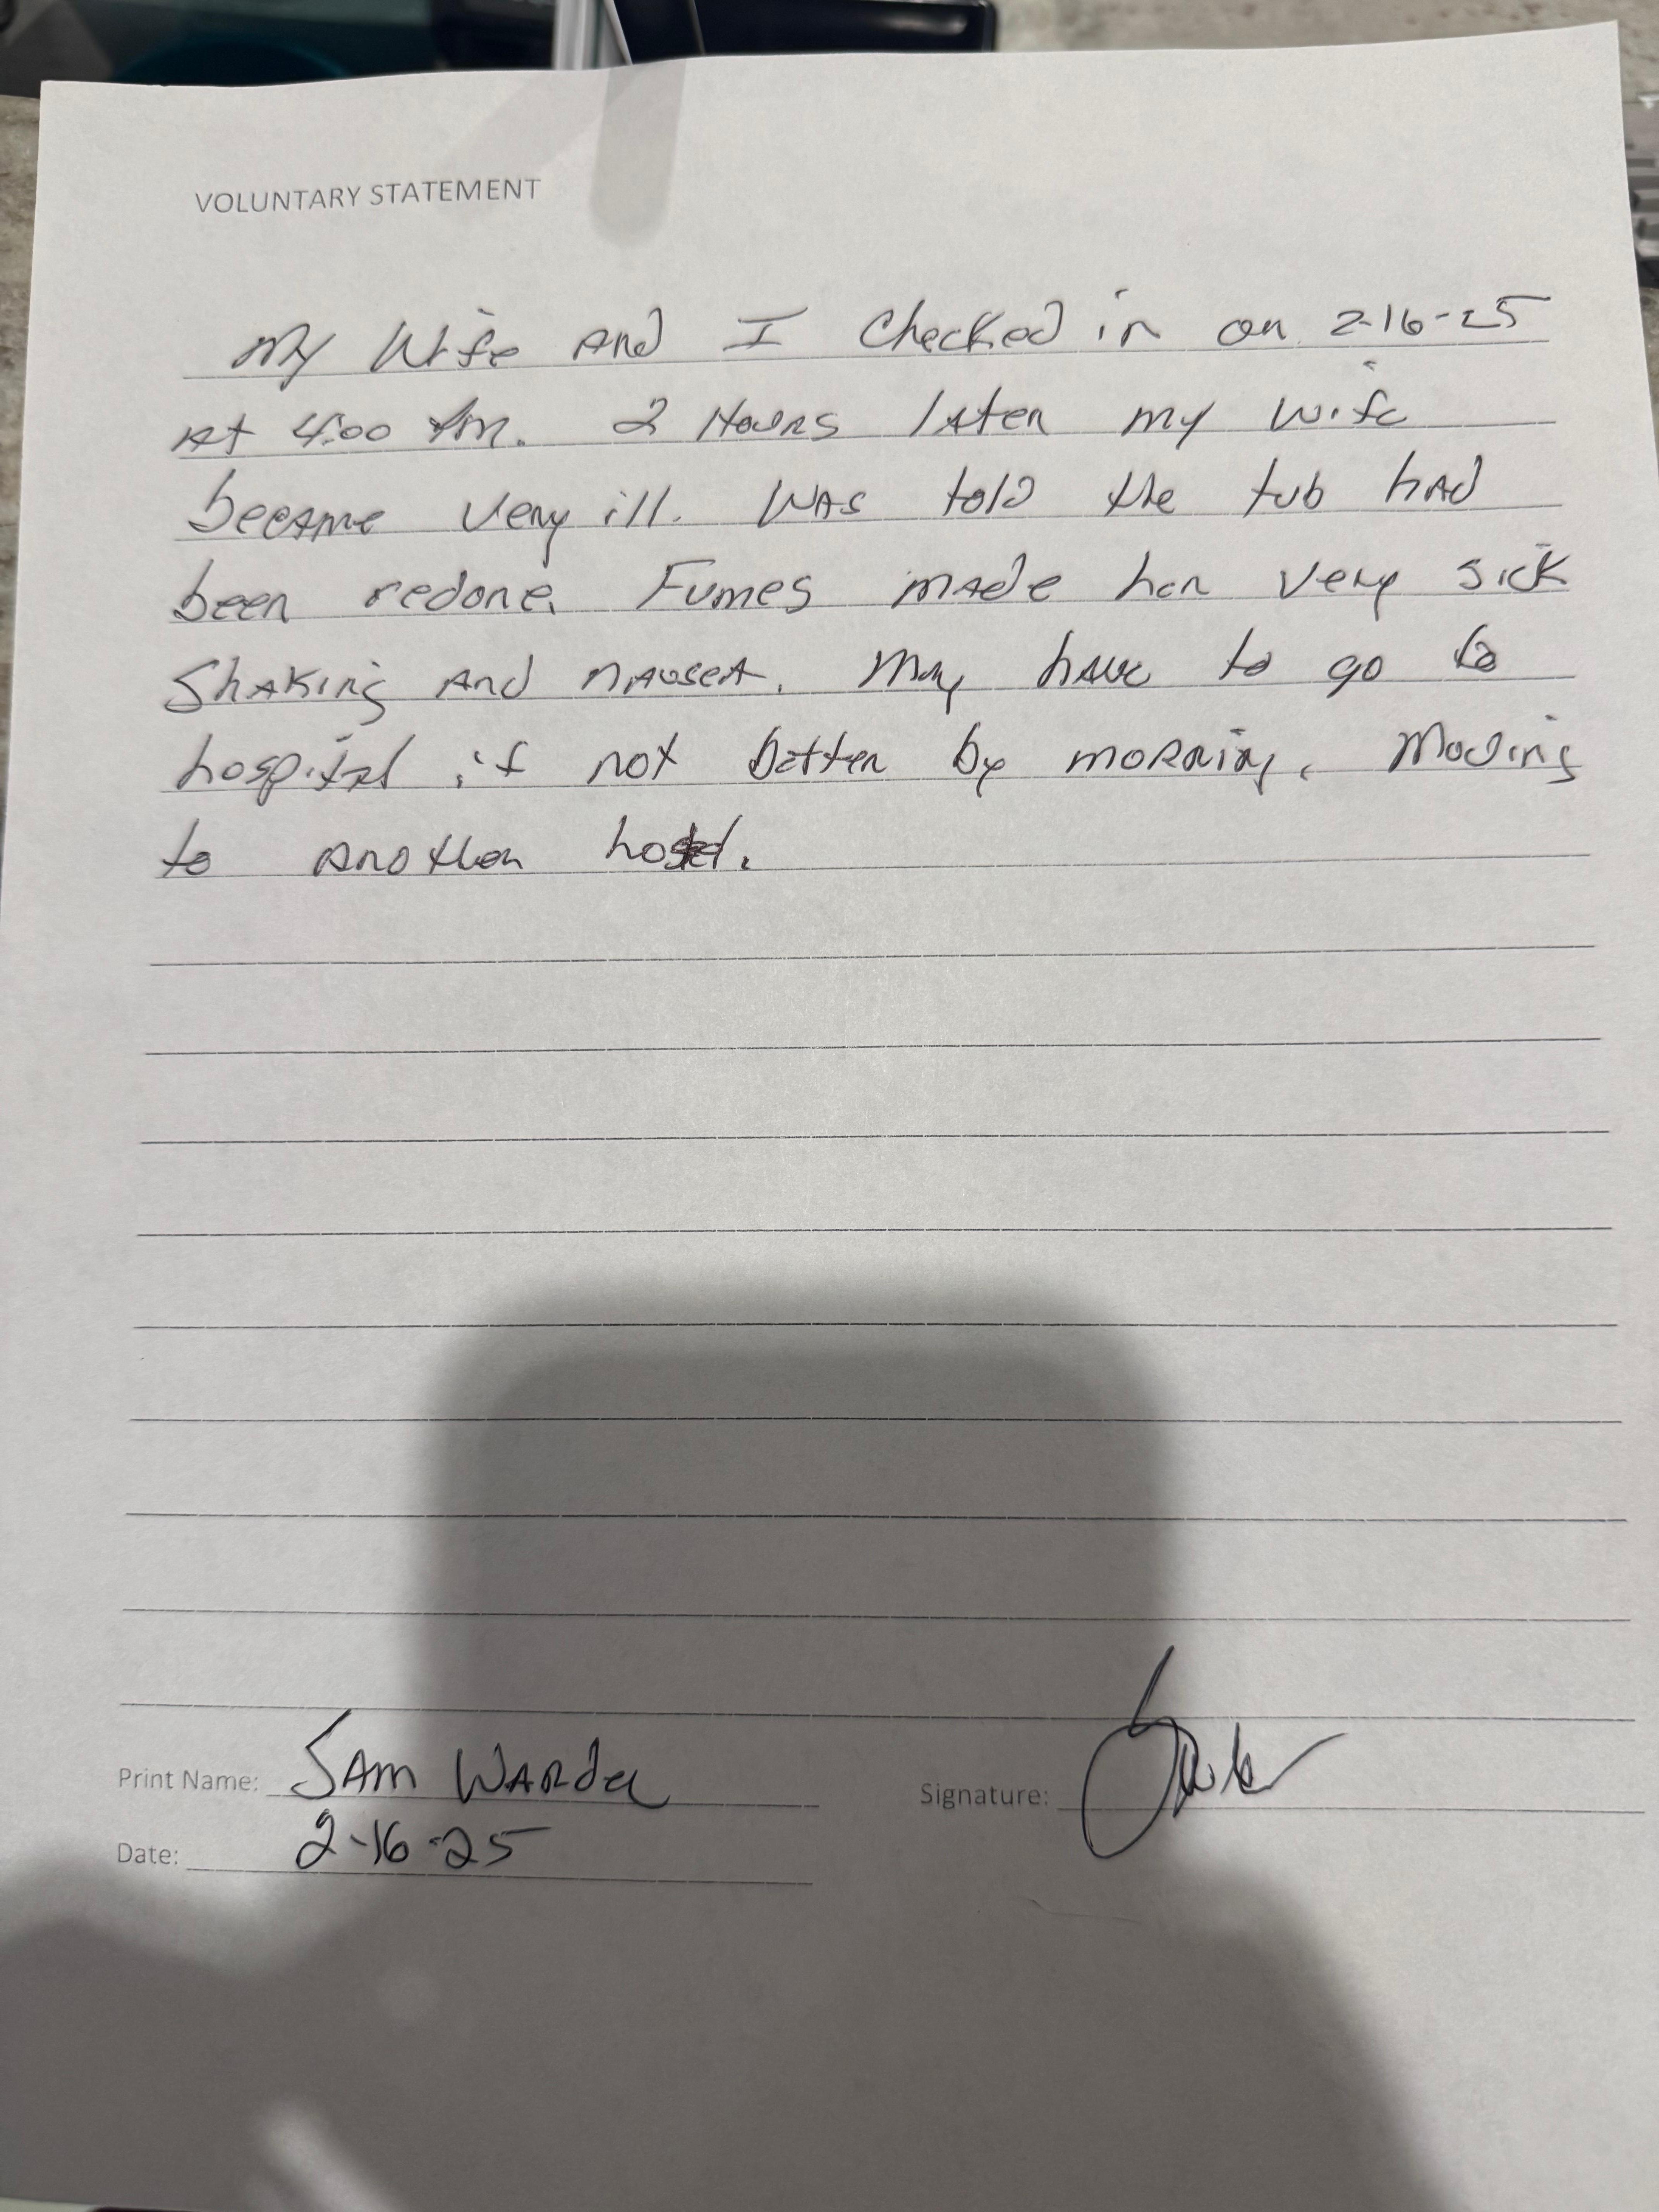 VOLUNTARY STATEMENT
My Wife And I Checked in on 2-16-25
At 4:00 Pm. 2 Hours later my wife
became very ill. Was told the tub had
been redone. Fumes made her very sick
Shaking And nausea. May have to go to
hospital if not better by morning. Moving
to another hotel.
Print Name: Sam Warda
Signature:
Date: 2-16-25